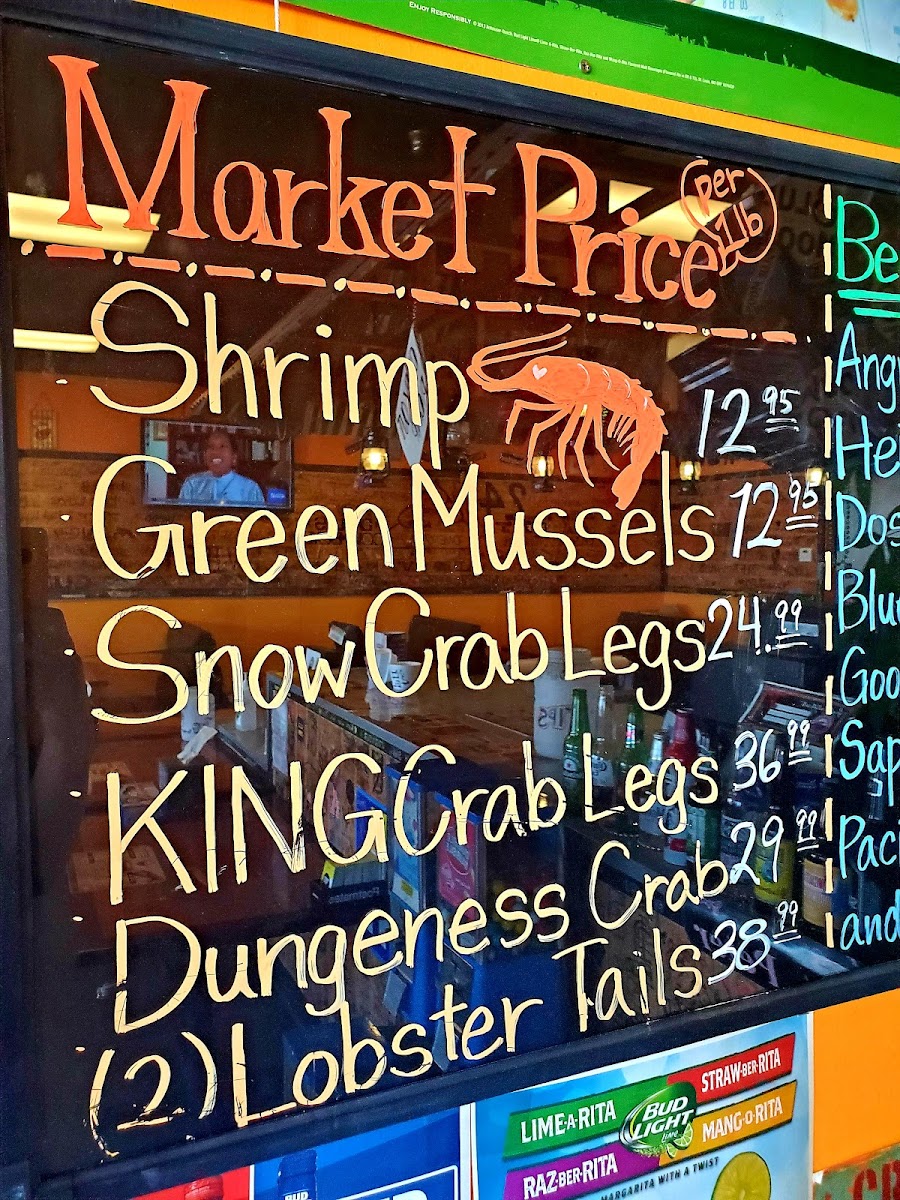 ENJOY RESPONSIBLY
Market Price (per 1 lb)
Shrimp 12.95
Green Mussels 12.95
Snow Crab Legs 24.99
KING Crab Legs 36.99
Dungeness Crab 29.99
(2) Lobster Tails 38.99
Be
Ang
He
Dos
Blu
Goo
Sap
Paci
and
TIPS
LIME-A-RITA
STRAW-BER-RITA
BUD LIGHT
Lime
RAZ-BER-RITA
MANG-O-RITA
MARGARITA WITH A TWIST
BUD